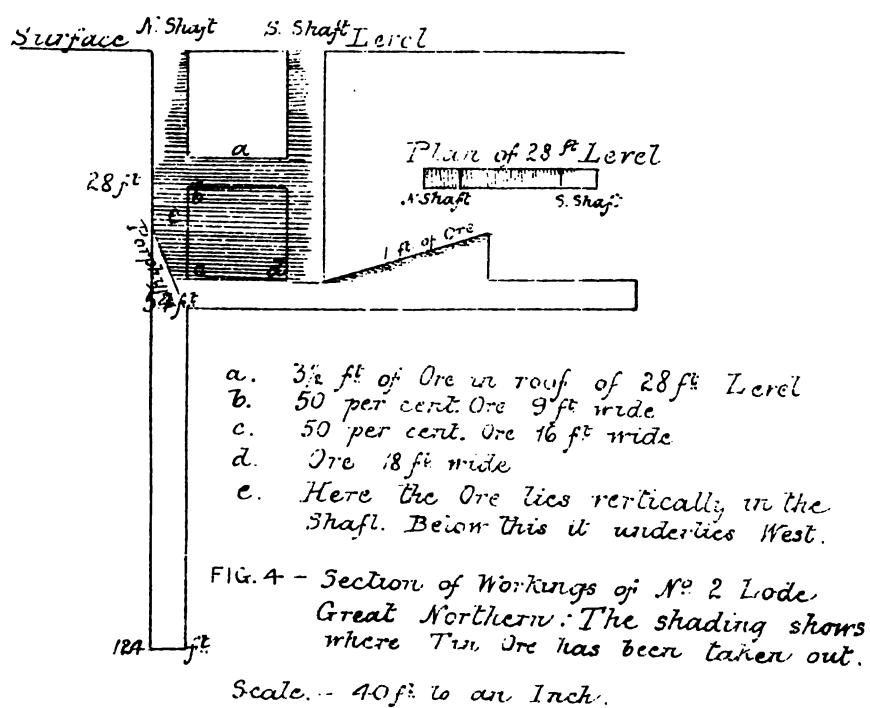 N. Shaft S. Shaft
Surface Level
a
Plan of 28 ft Level
28 ft
b
N. Shaft S. Shaft
c
1 ft. of Ore
Porphyry
d
54 ft
a. 3½ ft of Ore in roof of 28 ft Level
b. 50 per cent. Ore 9 ft wide
c. 50 per cent. Ore 16 ft wide
d. Ore 18 ft wide
e. Here the Ore lies vertically in the
Shaft. Below this it underlies West.
FIG. 4 - Section of Workings of No. 2 Lode
Great Northern: The shading shows
where Tin Ore has been taken out.
124 ft
Scale. - 40 ft to an Inch.